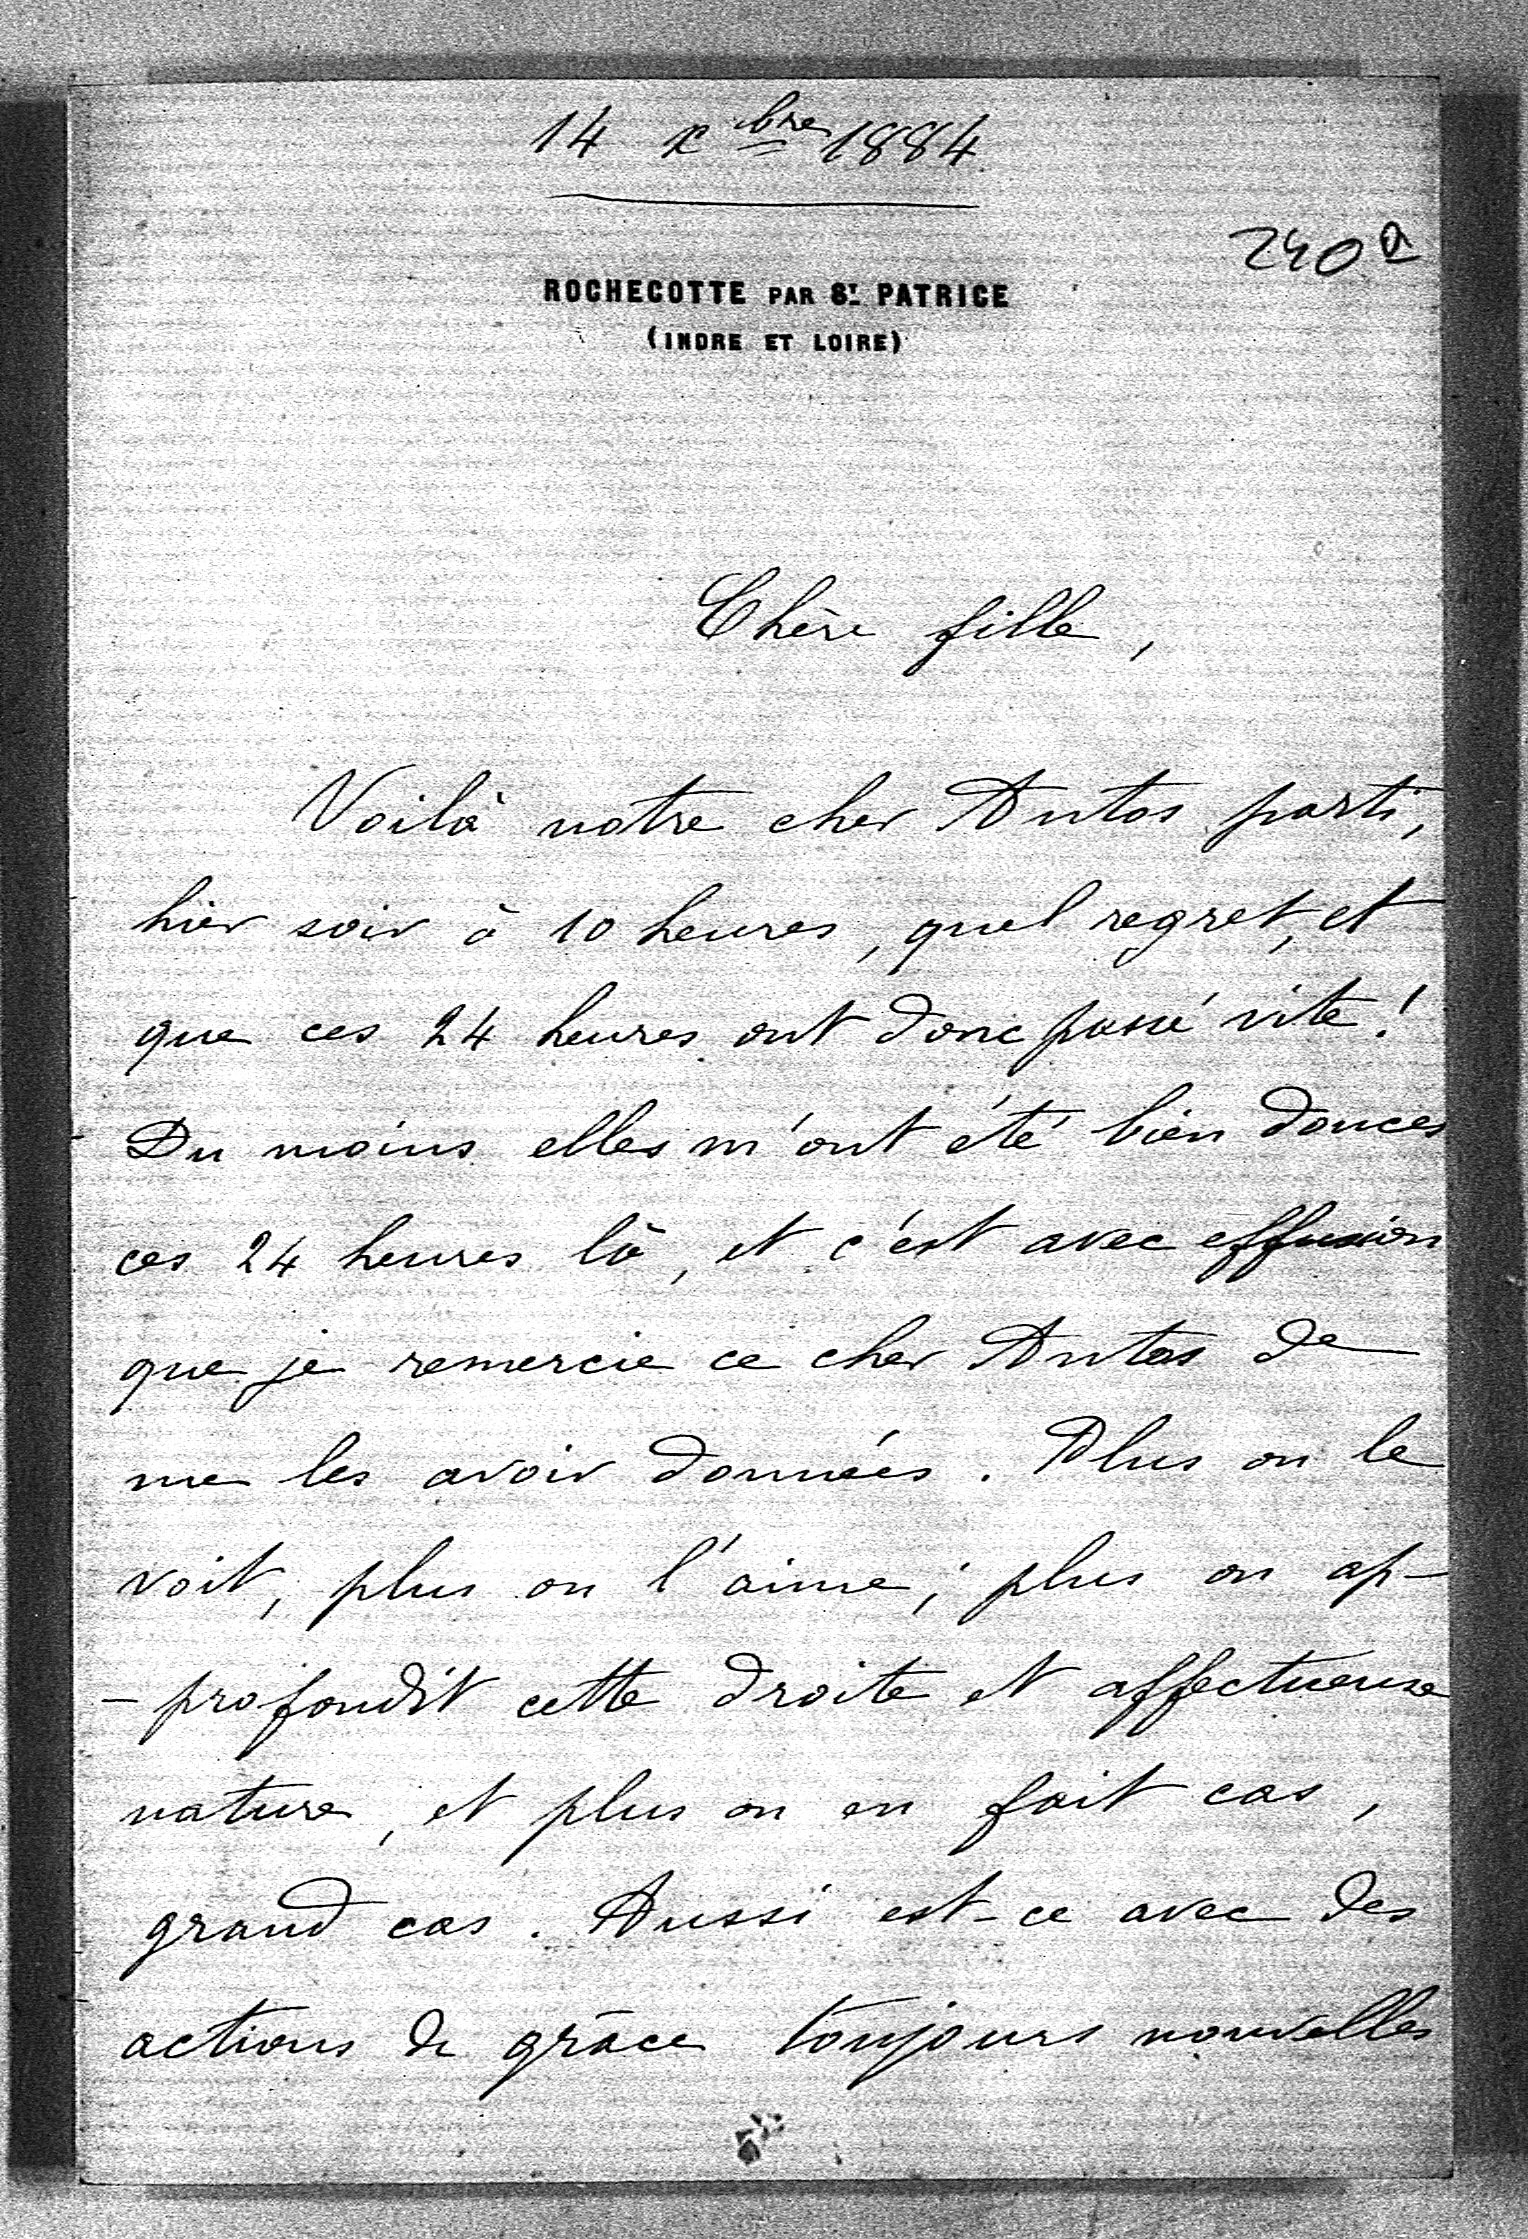 14 xbre 1884
240a
ROCHECOTTE PAR ST PATRICE
(INDRE ET LOIRE)
Chère fille,
Voilà notre cher Antos parti,
hier soir à 10 heures, quel regret, et
que ces 24 heures ont donc passé vite!
Du moins elles m'ont été bien douces
ces 24 heures là, et c'est avec effusion
que je remercie ce cher Antos de
me les avoir données. Plus on le
voit, plus on l'aime; plus on ap-
-profondit cette droite et affectueuse
nature, et plus on en fait cas,
grand cas. Aussi est-ce avec des
actions de grâce toujours nouvelles